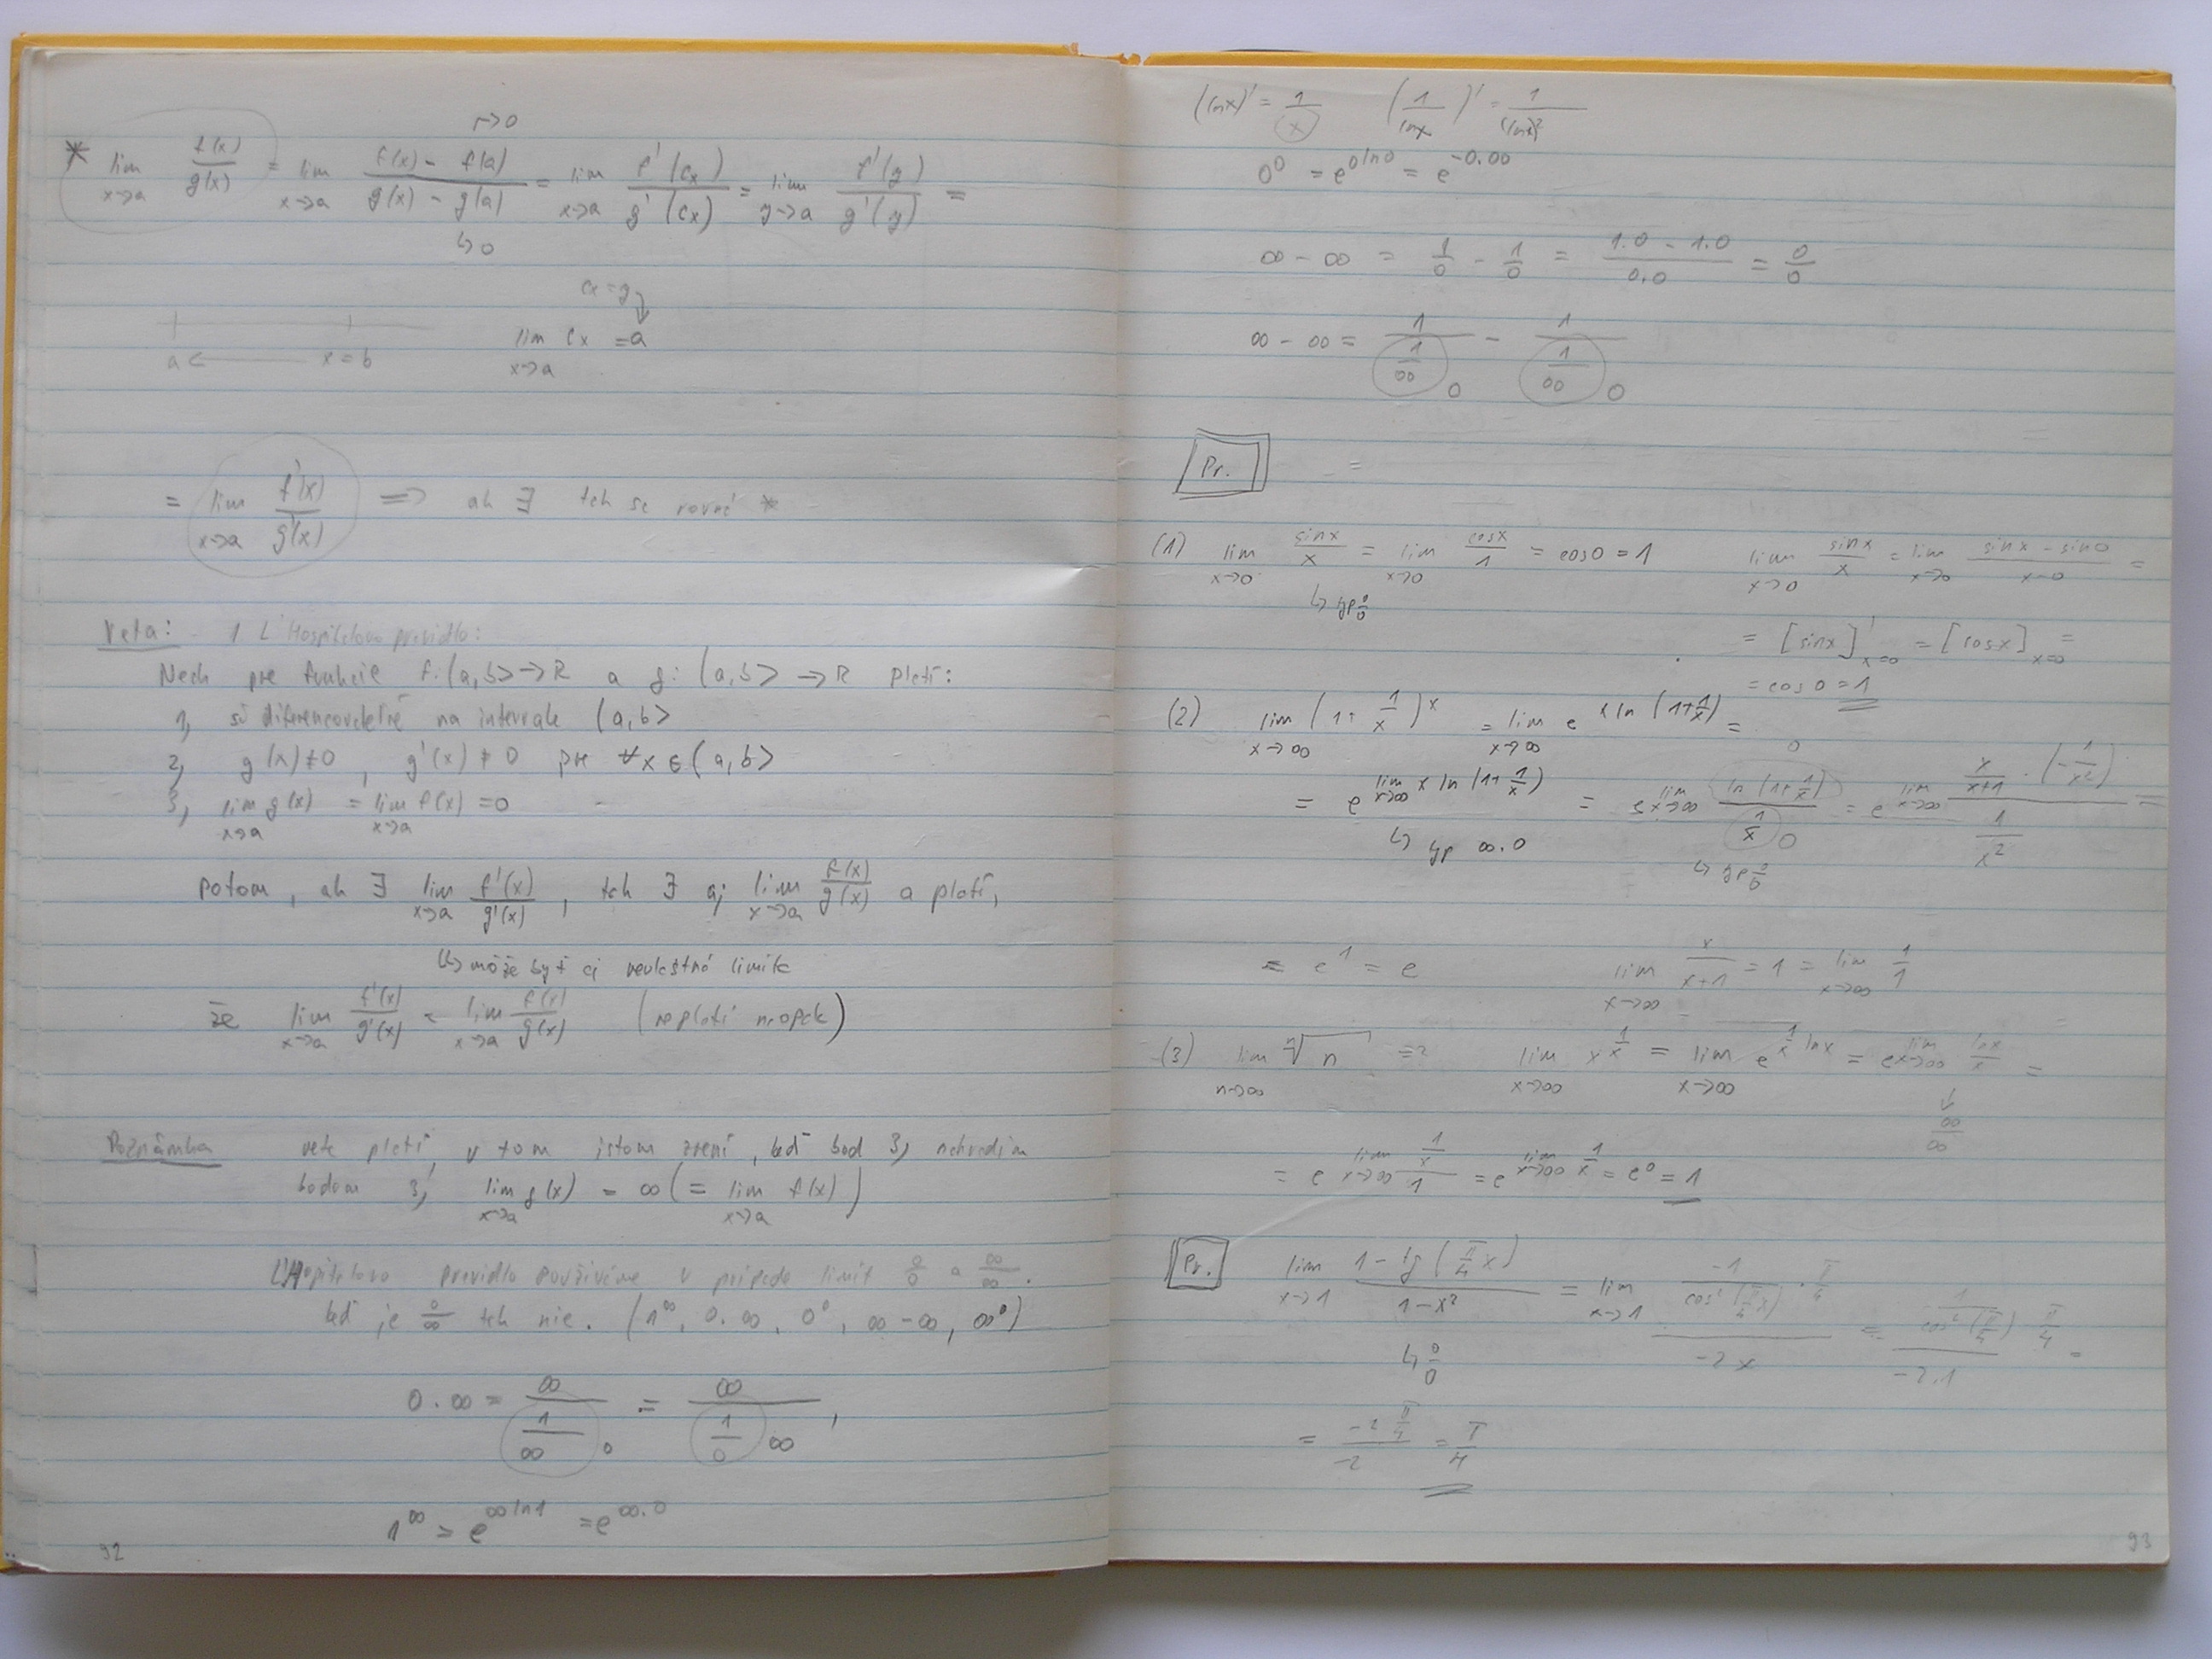 r→0
* lim x→a f(x)/g(x) = lim x→a (f(x) - f(a))/(g(x) - g(a)) = lim x→a f'(cx)/g'(cx) = lim y→a f'(y)/g'(y) =
↳0
cx = y
a ← x = b lim x→a cx = a
= lim x→a f'(x)/g'(x) ⟹ ak ∃ tak se rovná *
Veta: 1 L'Hospitalovo pravidlo:
Nech pre funkcie f: (a,b> → R a g: (a,b> → R platí:
1, sú diferencovateľné na intervale (a,b>
2, g(x) ≠ 0, g'(x) ≠ 0 pre ∀x ∈ (a,b>
3, lim x→a g(x) = lim x→a f(x) = 0
potom, ak ∃ lim x→a f'(x)/g'(x), tak ∃ aj lim x→a f(x)/g(x) a platí,
↳ môže byť aj nevlastná limita
že lim x→a f'(x)/g'(x) = lim x→a f(x)/g(x) (neplatí naopak)
Poznámka veta platí v tom istom znení, keď bod 3, nahradím
bodom 3,' lim x→a g(x) = ∞ (= lim x→a f(x))
L'Hopitalovo pravidlo používame v prípade limít 0/0 a ∞/∞.
keď je 0/∞ tak nie. (1^∞, 0.∞, 0^0, ∞-∞, ∞^0)
0.∞ = ∞/(1/∞) 0 = ∞/(1/0) ∞,
1^∞ = e^(∞ ln1) = e^(∞.0)
92
(lnx)' = 1/x (1/lnx)' = 1/(lnx)^2
0^0 = e^(0 ln0) = e^(-0.∞)
∞ - ∞ = 1/0 - 1/0 = (1.0 - 1.0)/(0.0) = 0/0
∞ - ∞ = 1/(1/∞) 0 - 1/(1/∞) 0
Pr. =
(1) lim x→0 sinx/x = lim x→0 cosx/1 = cos0 = 1 lim x→0 sinx/x = lim x→0 (sinx - sin0)/(x-0) =
↳ typ 0/0
= [sinx]' x=0 = [cosx] x=0 =
= cos0 = 1
(2) lim x→∞ (1 + 1/x)^x = lim x→∞ e^(x ln(1+1/x)) =
= e^(lim x→∞ x ln(1+1/x)) = e^(lim x→∞ ln(1+1/x) 0/(1/x) 0) = e^(lim x→∞ (x/(x+1) . (-1/x^2))/(1/x^2)) =
↳ typ ∞.0 ↳ typ 0/0
= e^1 = e lim x→∞ x/(x+1) = 1 = lim x→∞ 1/1
(3) lim n→∞ ⁿ√n =? lim x→∞ x^(1/x) = lim x→∞ e^(1/x lnx) = e^(lim x→∞ lnx/x) =
↓ ∞/∞
= e^(lim x→∞ (1/x)/1) = e^(lim x→∞ 1/x) = e^0 = 1
Pr. lim x→1 (1 - tg(π/4 x))/(1-x^2) = lim x→1 (-1/cos^2(π/4 x) . π/4)/(-2x) = (1/cos^2(π/4) π/4)/(-2.1) =
↳ 0/0
= (-2 π/4)/(-2) = π/4
93